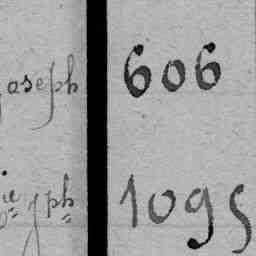 oseph 606
ie jph 1095